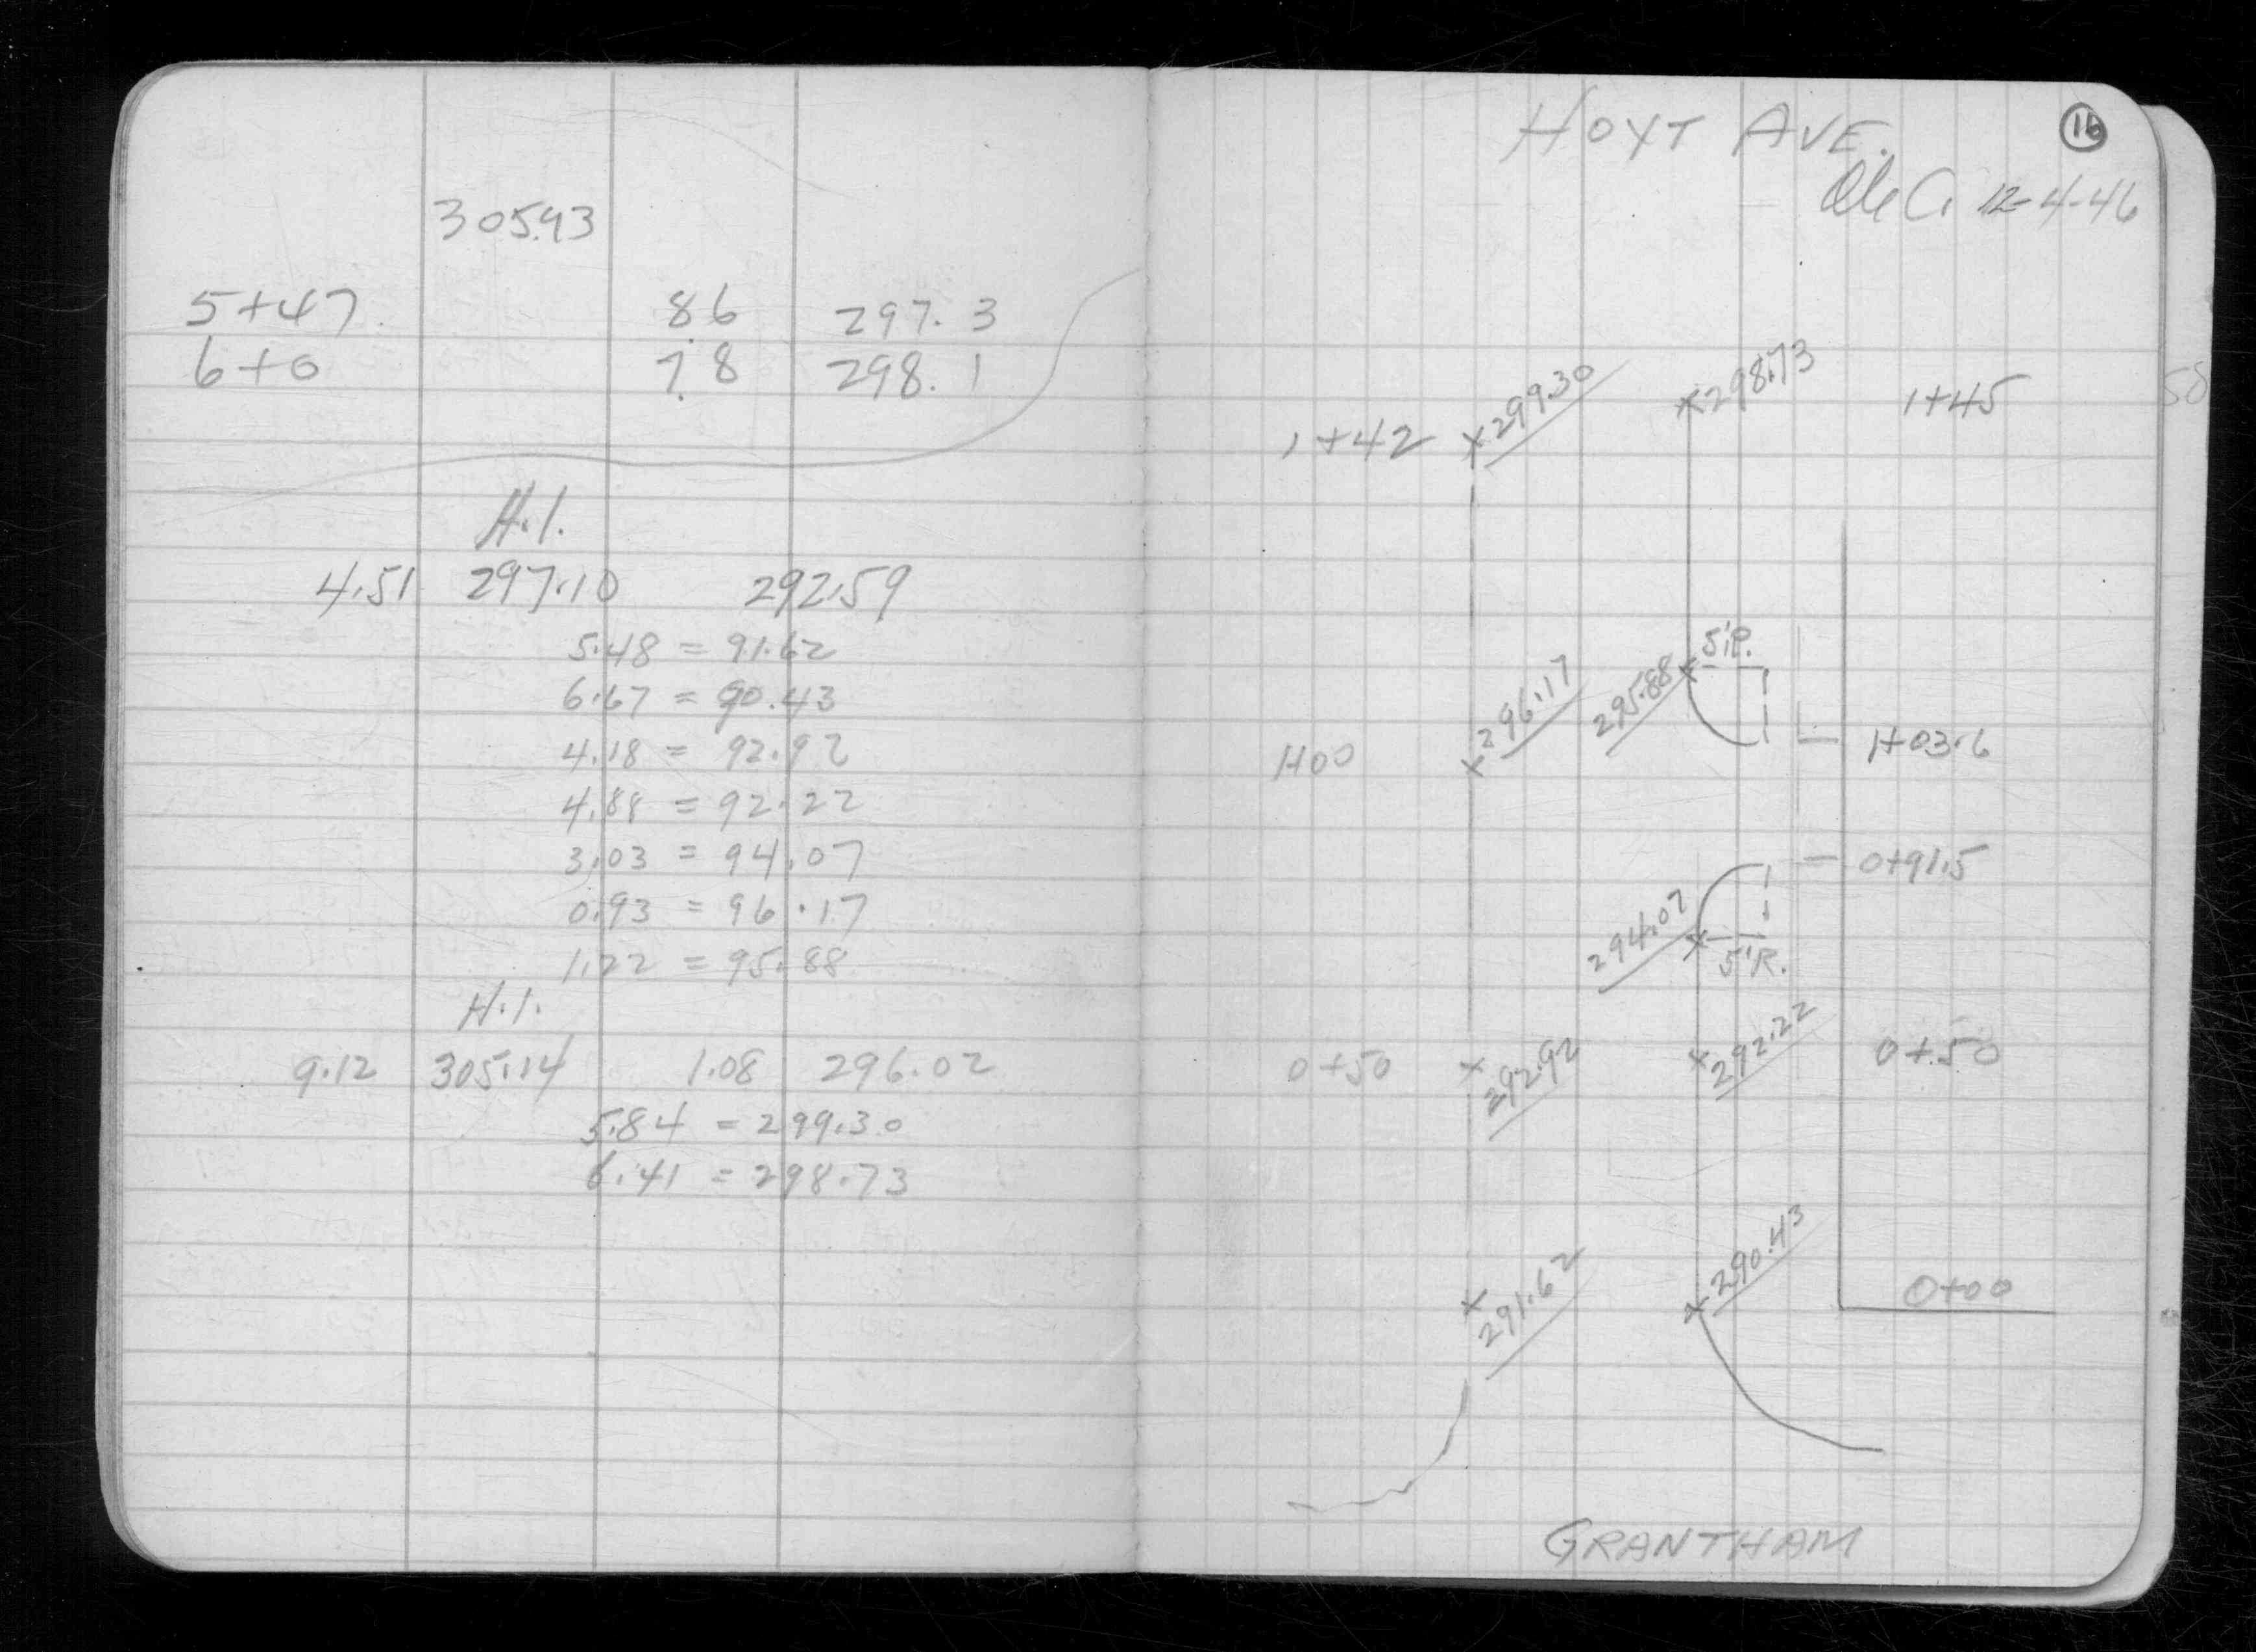 305.93
5+47 8.6 297.3
6+0 7.8 298.1
H.I.
4.51 297.10 292.59
5.48 = 91.62
6.67 = 90.43
4.18 = 92.92
4.88 = 92.22
3.03 = 94.07
0.93 = 96.17
1.22 = 95.88
H.I.
9.12 305.14 1.08 296.02
5.84 = 299.30
6.41 = 298.73
16
HOYT AVE.
12-4-46
1+42 x299.30 x298.73 1+45
58
5'R.
1+00 x296.17 295.88x 1+03.6
0+91.5
294.07x
5'R.
0+50 x292.92 x292.22 0+50
x291.62 x290.43 0+00
GRANTHAM